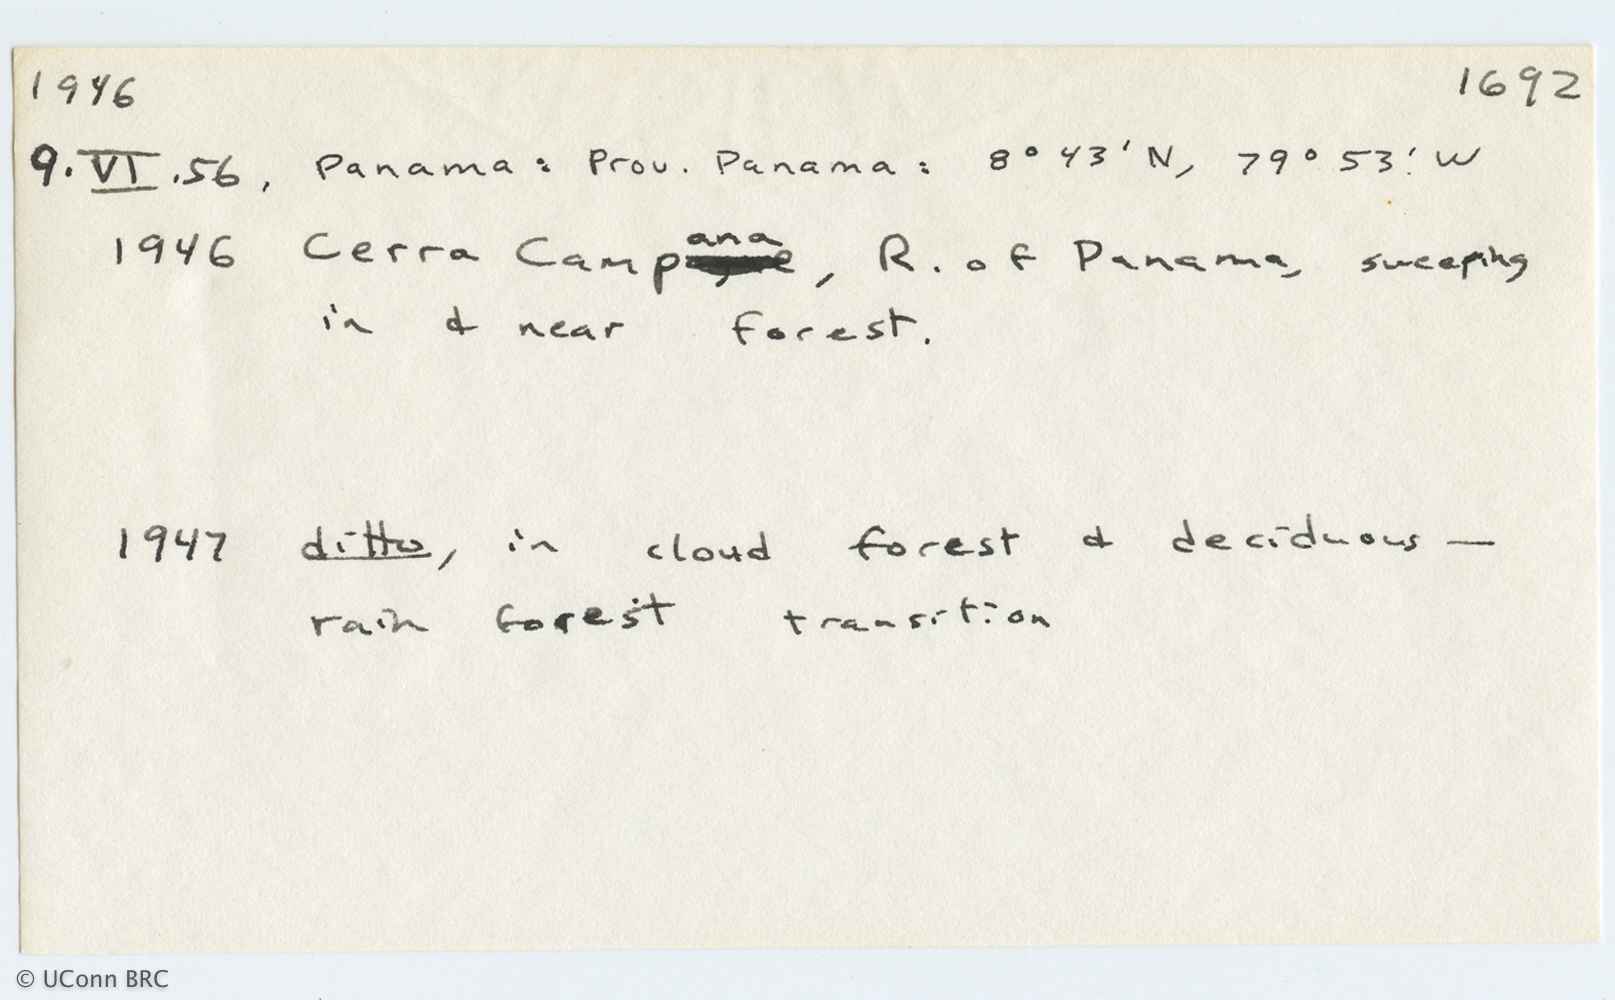 1946 1692
9.VI.56, Panama: Prov. Panama: 8° 43' N, 79° 53' W
ana
1946 Cerra Camp, R. of Panama, sweeping
in & near forest.
1947 ditto, in cloud forest & deciduous —
rain forest transition
© UConn BRC